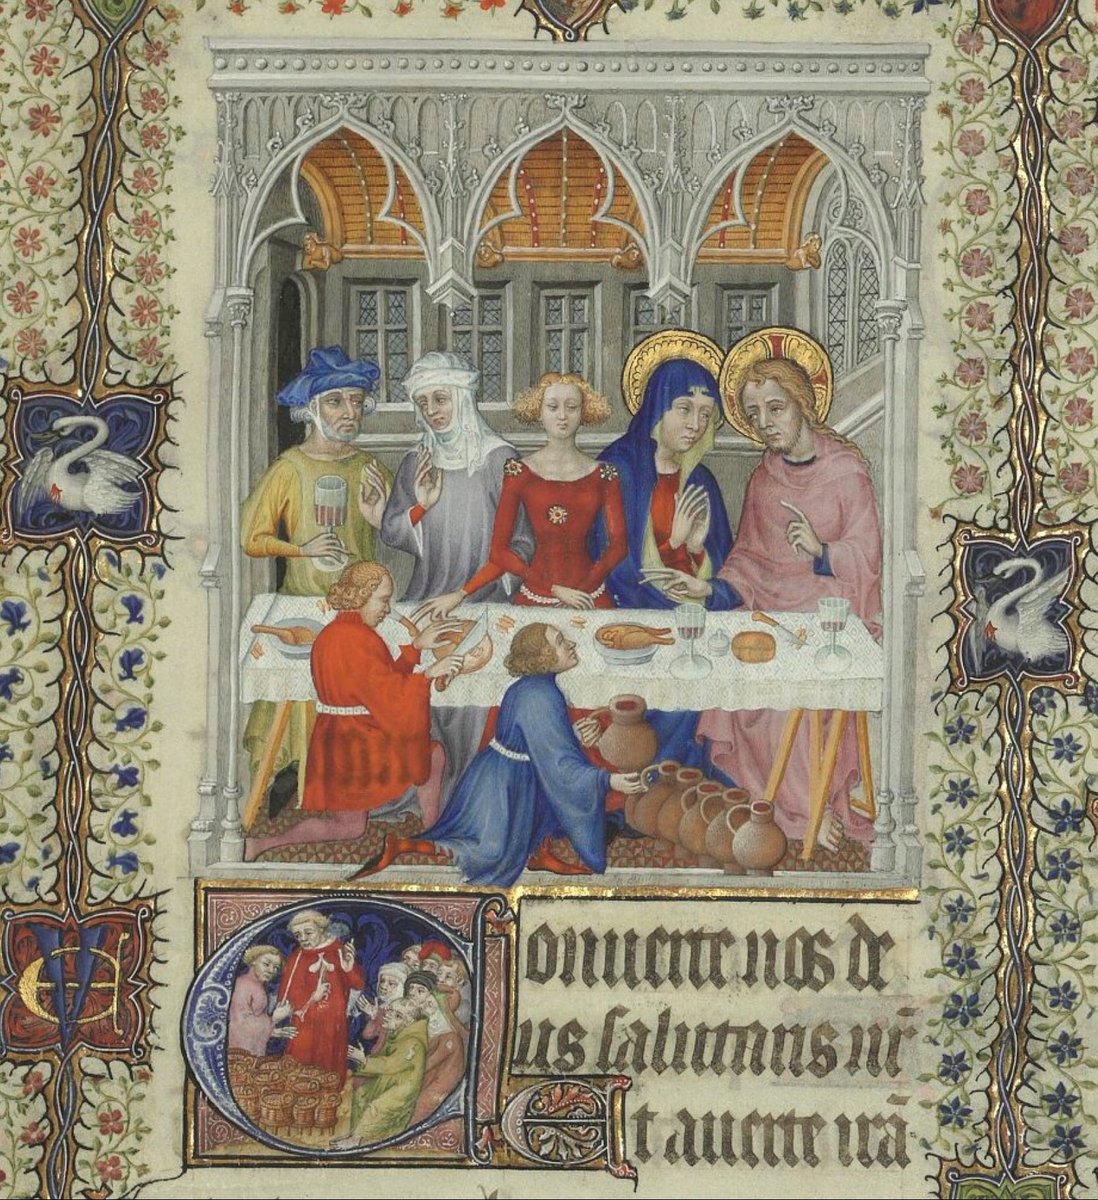 Conuerte nos de
us salutaris nr̄
Et auerte irā·